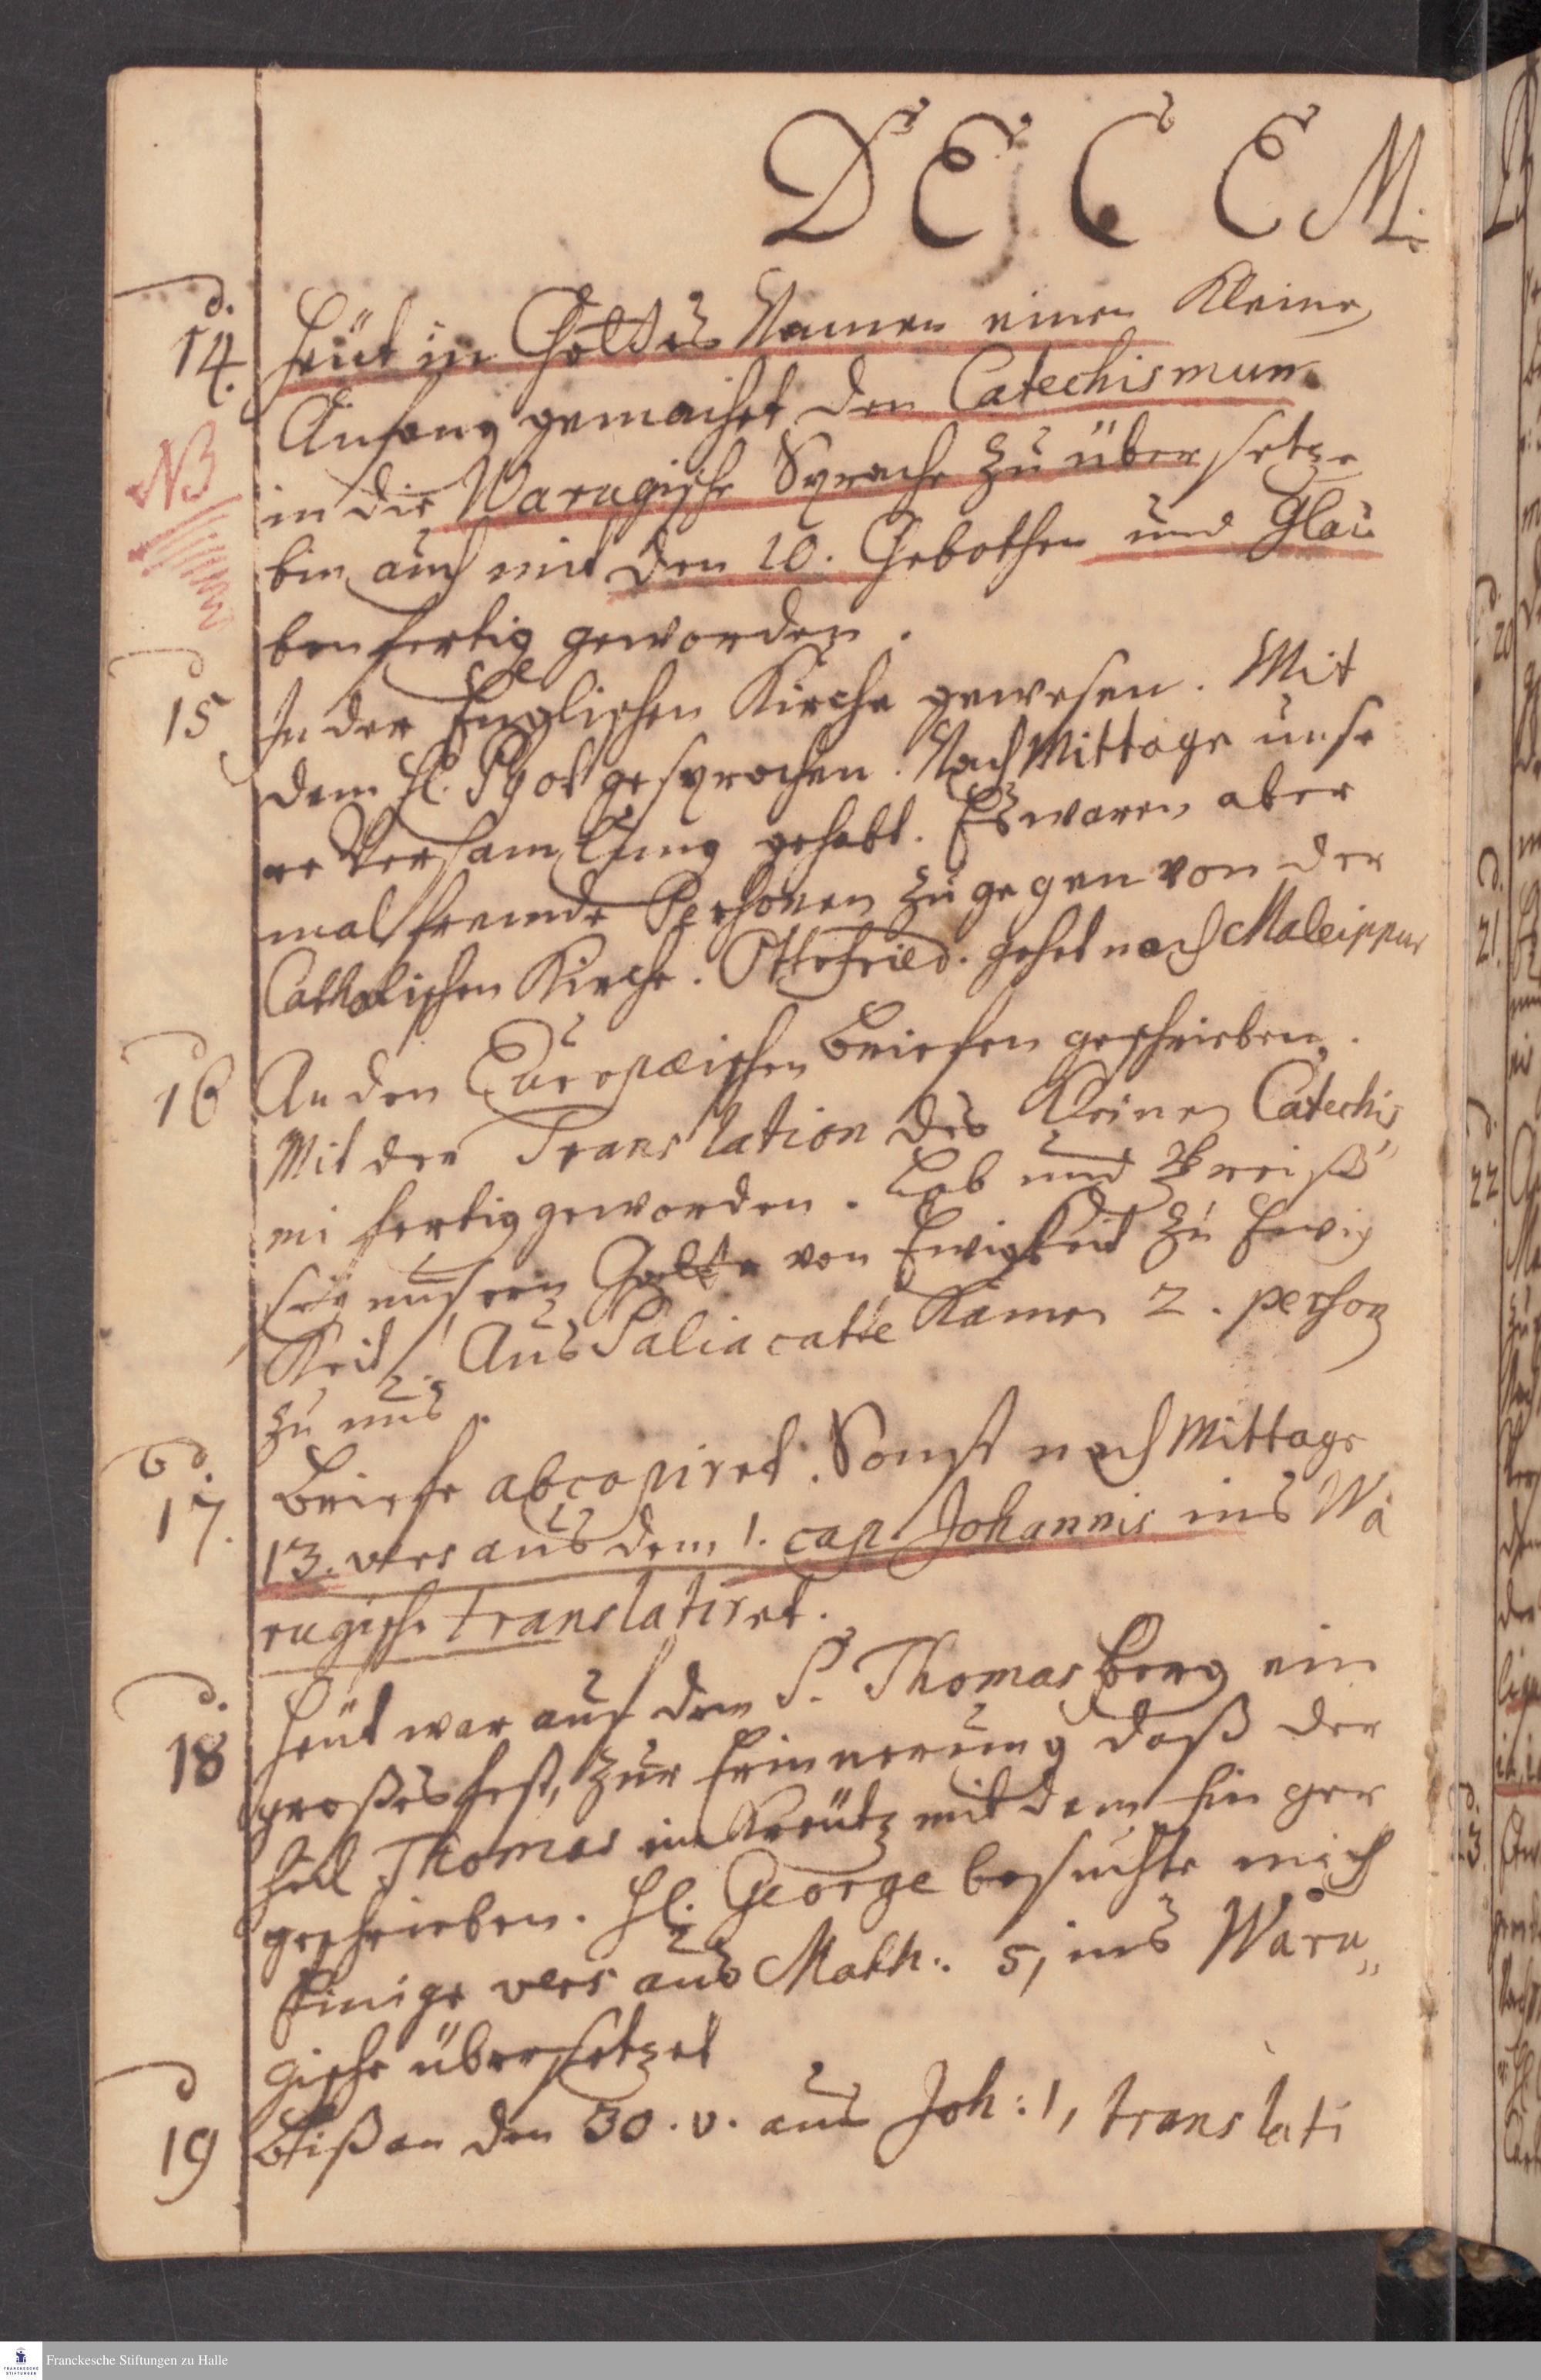 DECEM.
d. 14. Heüt in Gottes Namen einen Kleinen
Anfang gemachet den Catechismum
NB in die Warugische Sprache zu übersetzen
bin auch mit den 10. Gebothen und Glau
ben fertig geworden.
d 15 In der Englischen Kirche gewesen. Mit
dem H. gesprochen. Nach Mittage unse
re Versamlung gehabt. Es waren aber
mal fremde Persohnen zu gegen von der
Catholischen Kirche. Ottefried. gehet nach Maleippur
d 16 An den Europæischen Briefen geschrieben.
Mit der Translation des Kleinen Catechis
mi fertig geworden. Lob und Preiß
sey unserm Gotte von Ewigkeit zu Ewig
Keit! Aus Paliacatte Kamen 2. person
zu uns.
d. 17. Briefe abcopiret. Sonst nach Mittage
13. vers aus dem 1. cap. Johannis ins Wa
rugische translatiret.
d. 18 Heüt war auf dem S. Thomas Berg ein
großes fest, zur Erinnerung daß der
Heil Thomas im Kreütz mit dem Finger
geschrieben. H. George besuchte mich
Einige vers aus Math: 5, ins Waru„
gische übersetzet
d 19 Biß an den 30. v. aus Joh: 1, translati
Franckesche Stiftungen zu Halle